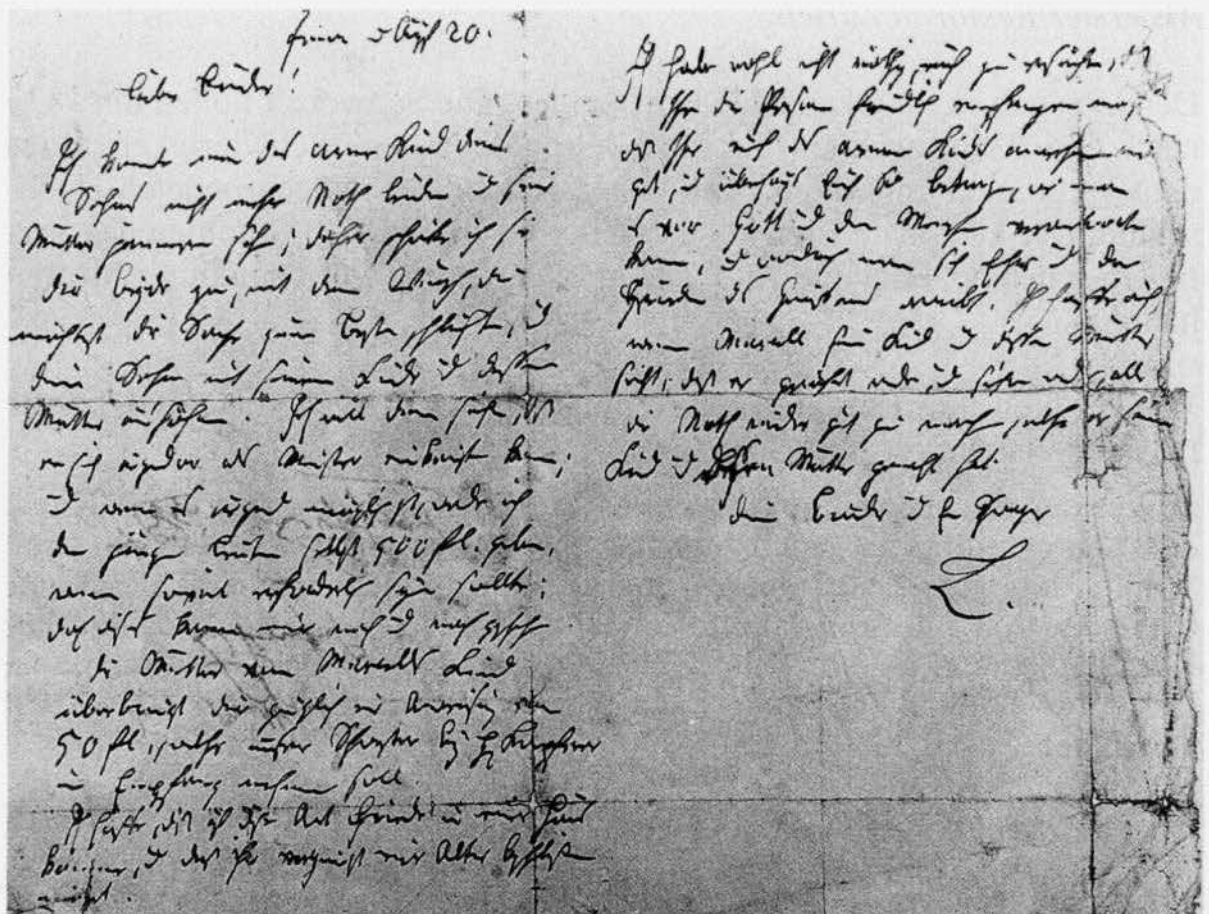 20.
Lieber Bruder!
Ich konnte nun das arme Kind deines
Sohns nicht mehr Noth leiden u seine
Mutter jammern sehn; daher schicke ich sie
dir beyde zu, mit dem Wunsch, du
möchtest die Sache zum Besten schlichten, u
dein Sohn mit seinem Kinde u dessen
Mutter aussöhnen. Ich will dann sehn, daß
er sich irgendwo als Meister einkaufen kann;
u wenn es irgend möglich ist, werde ich
den jungen Leuten selbst 500 fl. geben,
wenn soviel erforderlich seyn sollte;
doch dieses kann nur nach u nach geschehn
die Mutter von Kind
überbringt dir zugleich eine Anweisung von
50 fl, welche unser Schwester bey H
in Empfang nehmen soll.
Ich hoffe, daß auf diese Art Friede in euer Haus
komme, u daß ihr vergnügt euer Alter beschließen
möget.
Ich habe wohl nicht nöthig, euch zu ersuchen, daß
Ihr die Person freundlich empfangen möget,
daß Ihr euch des armen Kindes annehmen möget
u überhaupt Euch so betragt, wie man
es vor Gott u den Menschen verantworten
kann, u wodurch man sich Ehre u den
Frieden des Gewissens erwirbt. Ich hoffe auch,
wenn sein Kind u dessen Mutter
sieht, daß er gerührt werde, u suchen werde, alle
die Noth wieder gut zu machen, welche er seinem
Kind u dessen Mutter gemacht hat.
dein Bruder u
L.